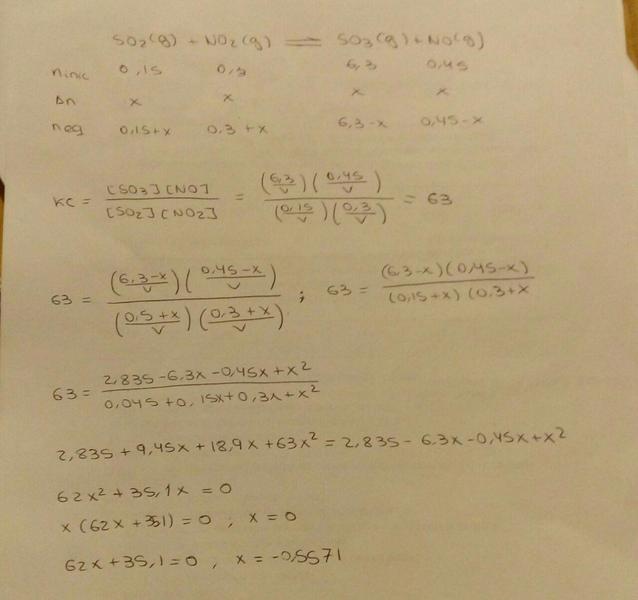 SO2(g) + NO2(g) ⇌ SO3(g) + NO(g)
ninic 0,15 0,3 6,3 0,45
Δn x x x x
neq 0,15+x 0,3+x 6,3-x 0,45-x
KC = [SO3][NO] / [SO2][NO2] = (6,3/V)(0,45/V) / (0,15/V)(0,3/V) = 63
63 = (6,3-x/V)(0,45-x/V) / (0,5+x/V)(0,3+x/V) ; 63 = (6,3-x)(0,45-x) / (0,15+x)(0,3+x
63 = 2,835-6,3x-0,45x+x² / 0,045+0,15x+0,3x+x²
2,835 + 9,45x + 18,9x + 63x² = 2,835 - 6,3x - 0,45x + x²
62x² + 35,1x = 0
x (62x + 351) = 0 , x = 0
62x + 35,1 = 0 , x = -0,5571